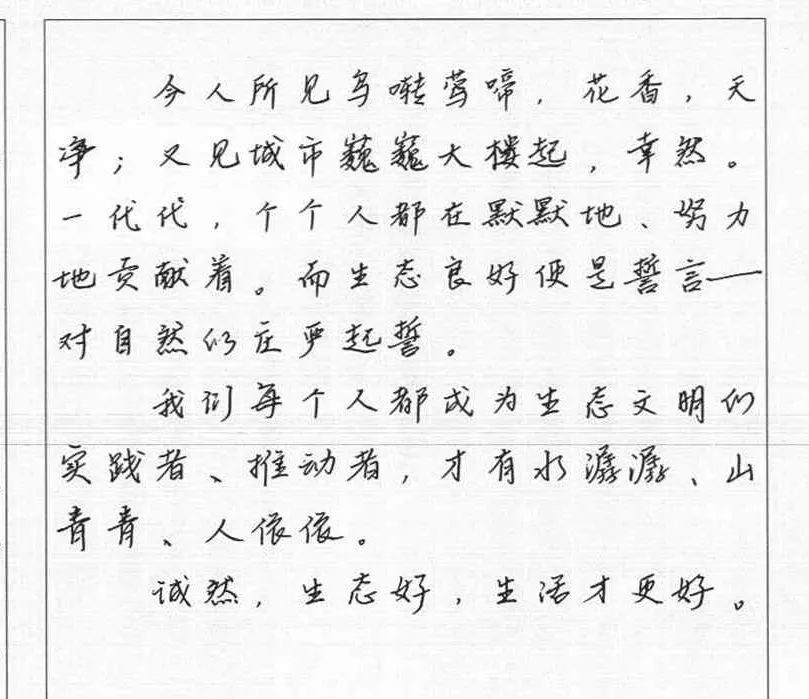 今人所见鸟啭莺啼，花香，天
净；又见城市巍巍大楼起，幸然。
一代代，个个人都在默默地、努力
地贡献着。而生态良好便是誓言——
对自然的庄严起誓。
我们每个人都成为生态文明的
实践者、推动者，才有水潺潺、山
青青、人依依。
诚然，生态好，生活才更好。